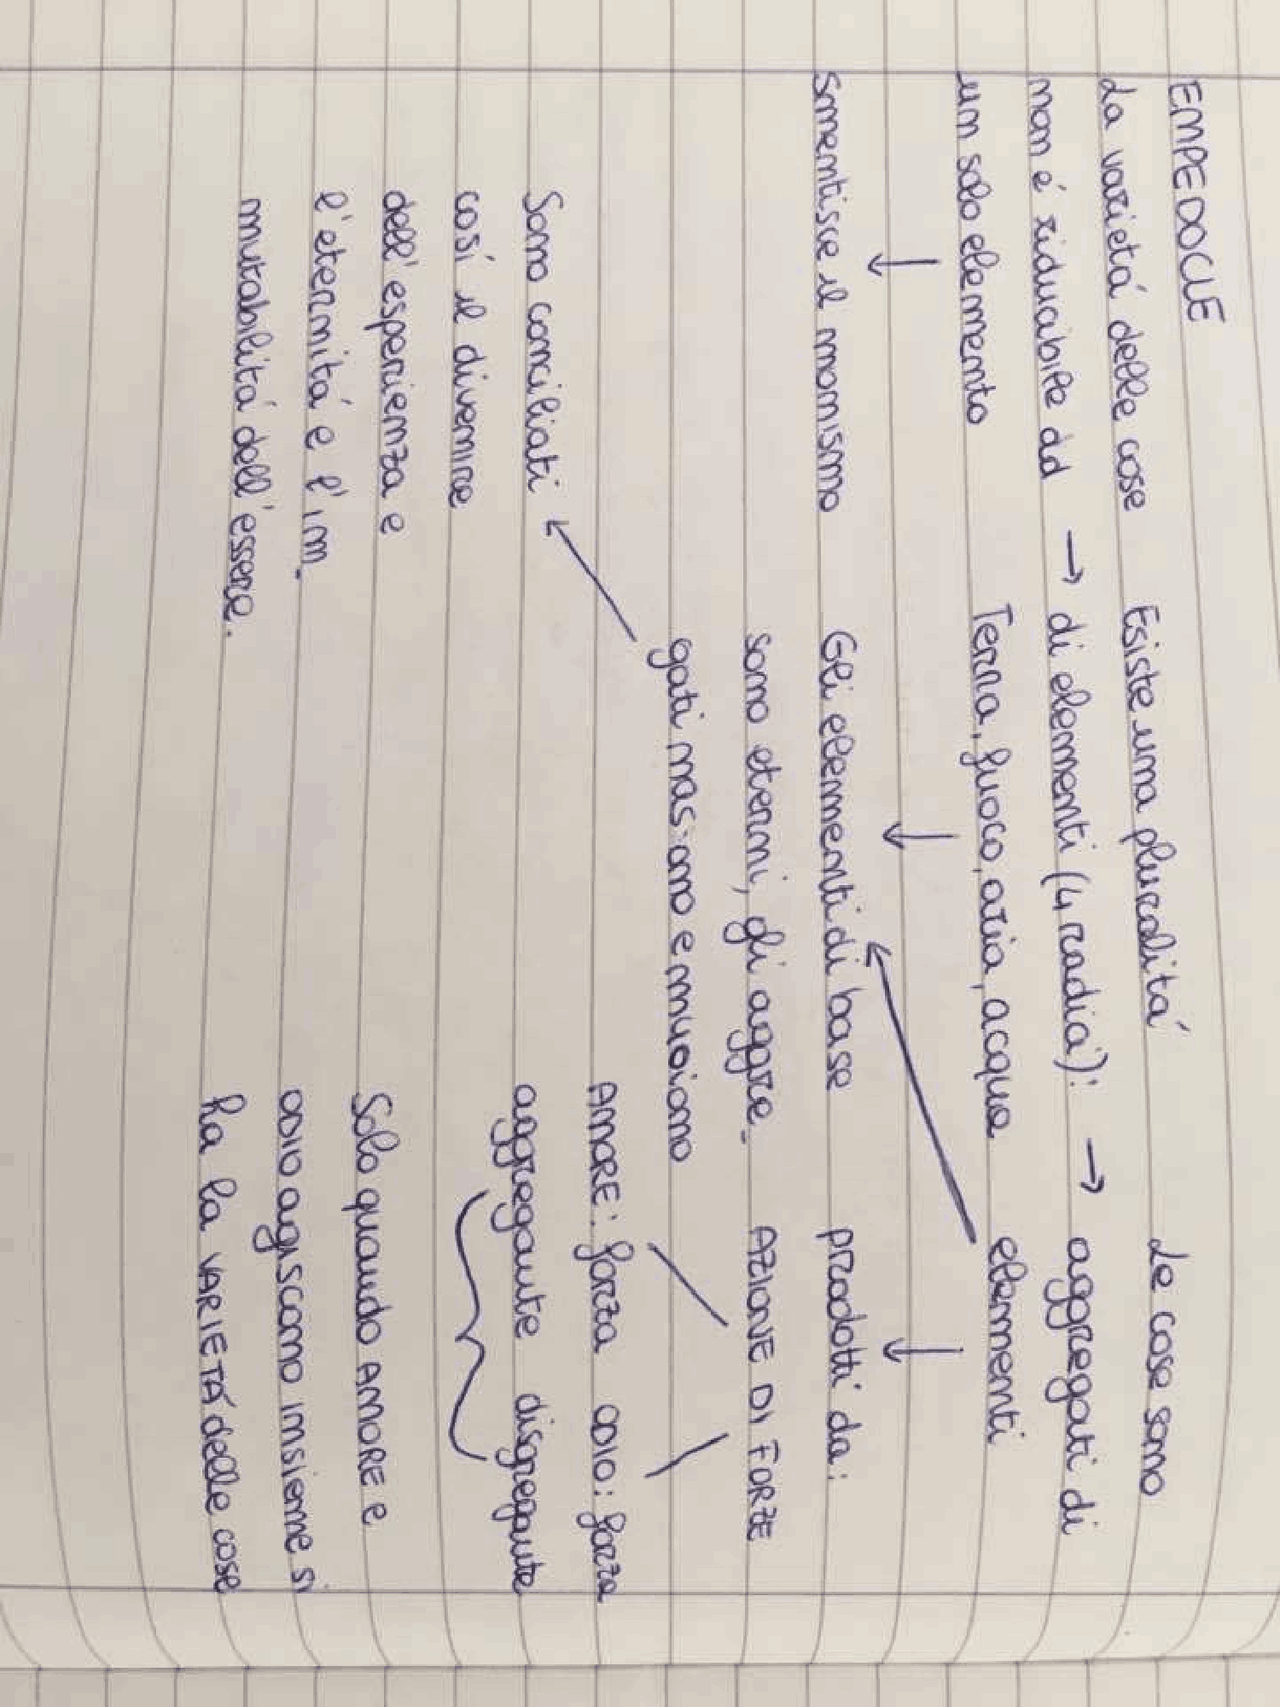 EMPEDOCLE
La varietá delle cose
non é riducibile ad →
un solo elemento
↓
smentisce il monismo
Esiste una pluralitá
di elementi (4 radici): →
Terra, fuoco, aria, acqua
↓
Gli elementi di base
sono eterni, gli aggre_
gati nascono e muoiono
Sono conciliati
cosí il divenire
dell'esperienza e
l'eternitá e l'im_
mutabilitá dell'essere.
Le cose sono
aggregati di
elementi
↓
prodotti da:
AZIONE DI FORZE
AMORE: forza ODIO: forza
aggregante disgregante
Solo quando AMORE e
ODIO agiscono insieme si
ha la VARIETÁ delle cose